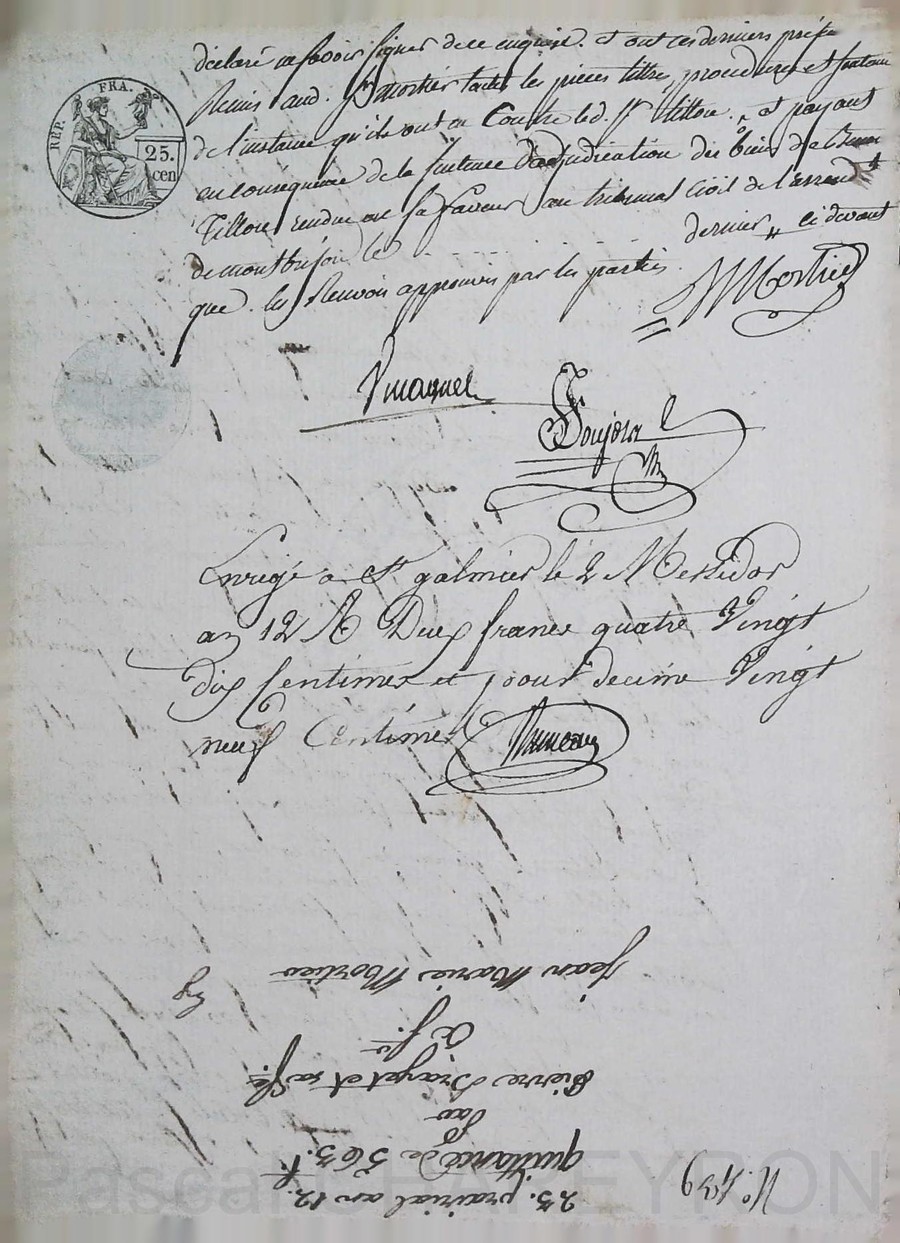 REP. FRA.
25.
cen
déclaré ne savoir signer de ce enquise. et ont ces derniers
Remis aud. Sr mortier toutes les pieces titres, procedures et
de l'instance qu'ils ont eu Contre led. Sr tillon. et
en consequence de la Sentence d'adjudication des biens de
Tillon rendue en sa faveur au tribunal Civil de l'arrond.t
de montbrison le dernier ci devant
que. les Renvois approuvés par les parties.
Mortier
Enregé a St galmier le 2 Messidor
an 12 R Deux francs quatre Vingt
dix Centimes et pour decime Vingt
neuf Centimes
Jean Marie Mortier
à Sr.
Pierre et sa fe
Par
quittance de 563.f
25. prairial an 12.
No. 439
Pascal CHAPEYRON